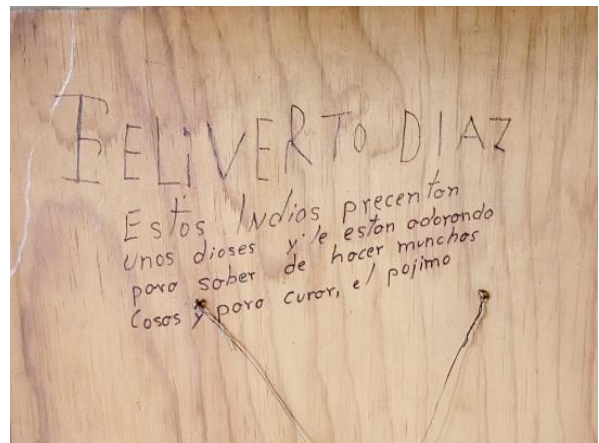 FELIVERTO DIAZ
Estos Indios precentan
unos dioses y le estan adorando
para saber de hacer munchas
Cosas y para curar, el pojimo